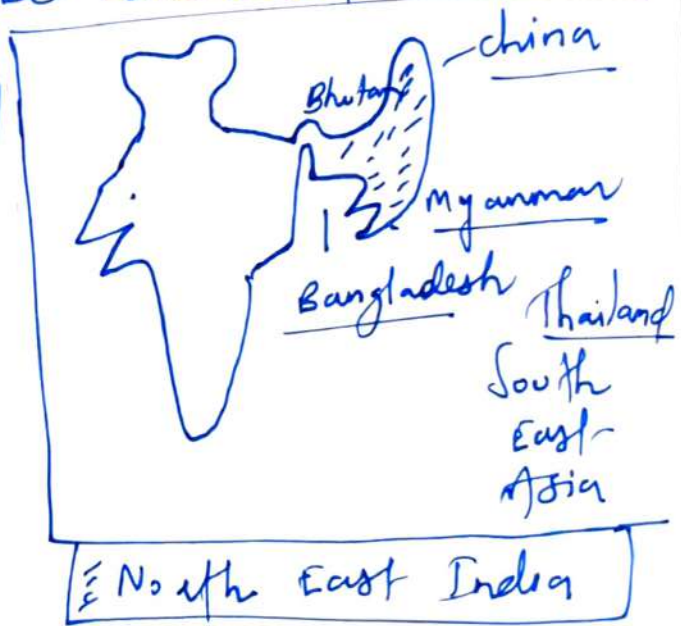 China
Bhutan
Myanmar
Bangladesh
Thailand
South
East
Asia
North East India